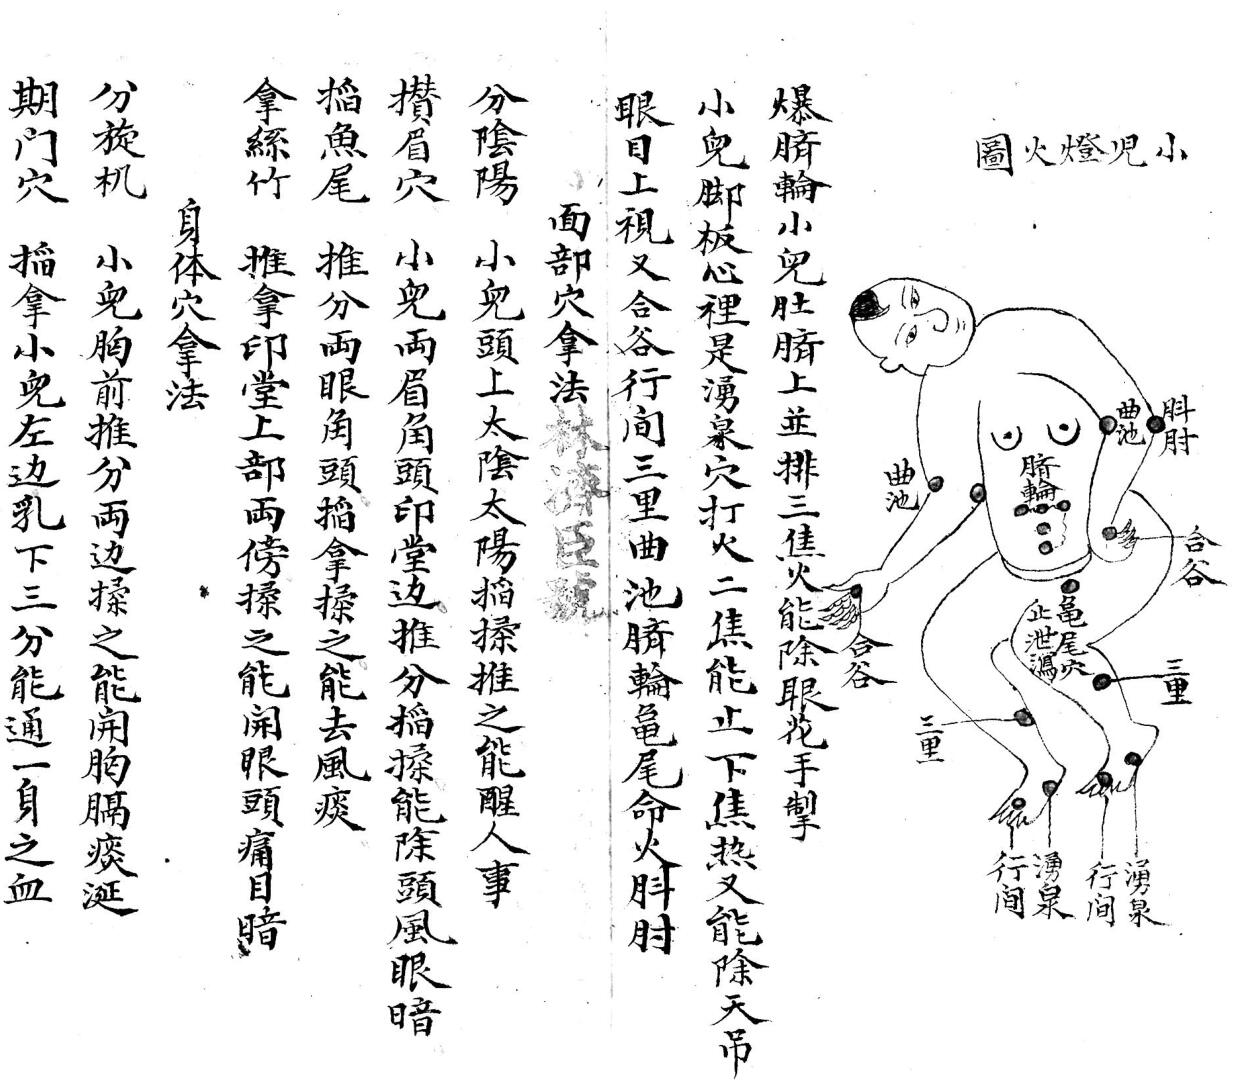 小児燈火圖
曲池
肘肘
臍輪
曲池
合谷
合谷
龟尾穴
止泄瀉
三里
三里
湧泉
行间
湧泉
行间
爆臍輪小兒肚臍上並排三焦火能除眼花手掣
小兒脚板心裡是湧泉穴打火二焦能止下焦热又能除天吊
眼目上視又合谷行间三里曲池臍輪龟尾命火肘肘
面部穴拿法
林濟臣號
分陰陽 小兒頭上太陰太陽搯揉推之能醒人事
攅眉穴 小兒両眉角頭印堂边推分搯揉能除頭風眼暗
搯魚尾 推分両眼角頭搯拿揉之能去風痰
拿絲竹 推拿印堂上部両傍揉之能開眼頭痛目暗
身体穴拿法
分旋机 小兒胸前推分両边揉之能開胸膈痰涎
期门穴 搯拿小兒左边乳下三分能通一身之血